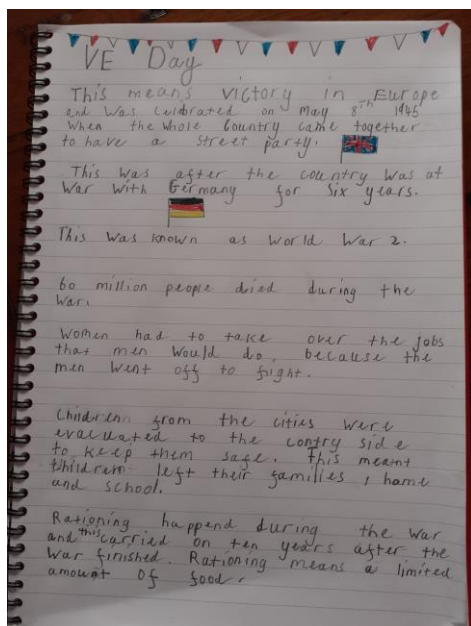 VE Day
This means victory in Europe
and was celebrated on may 8th 1945
when the whole country came together
to have a street party.
This was after the country was at
war with Germany for six years.
This was known as world war 2.
60 million people died during the
war.
Women had to take over the jobs
that men would do, because the
men went off to fight.
Children from the cities were
evaluated to the contry side
to keep them safe. This meant
Children left their families, home
and school.
Rationing happend during the war
and this carried on ten years after the
war finished. Rationing means a limited
amount of food.